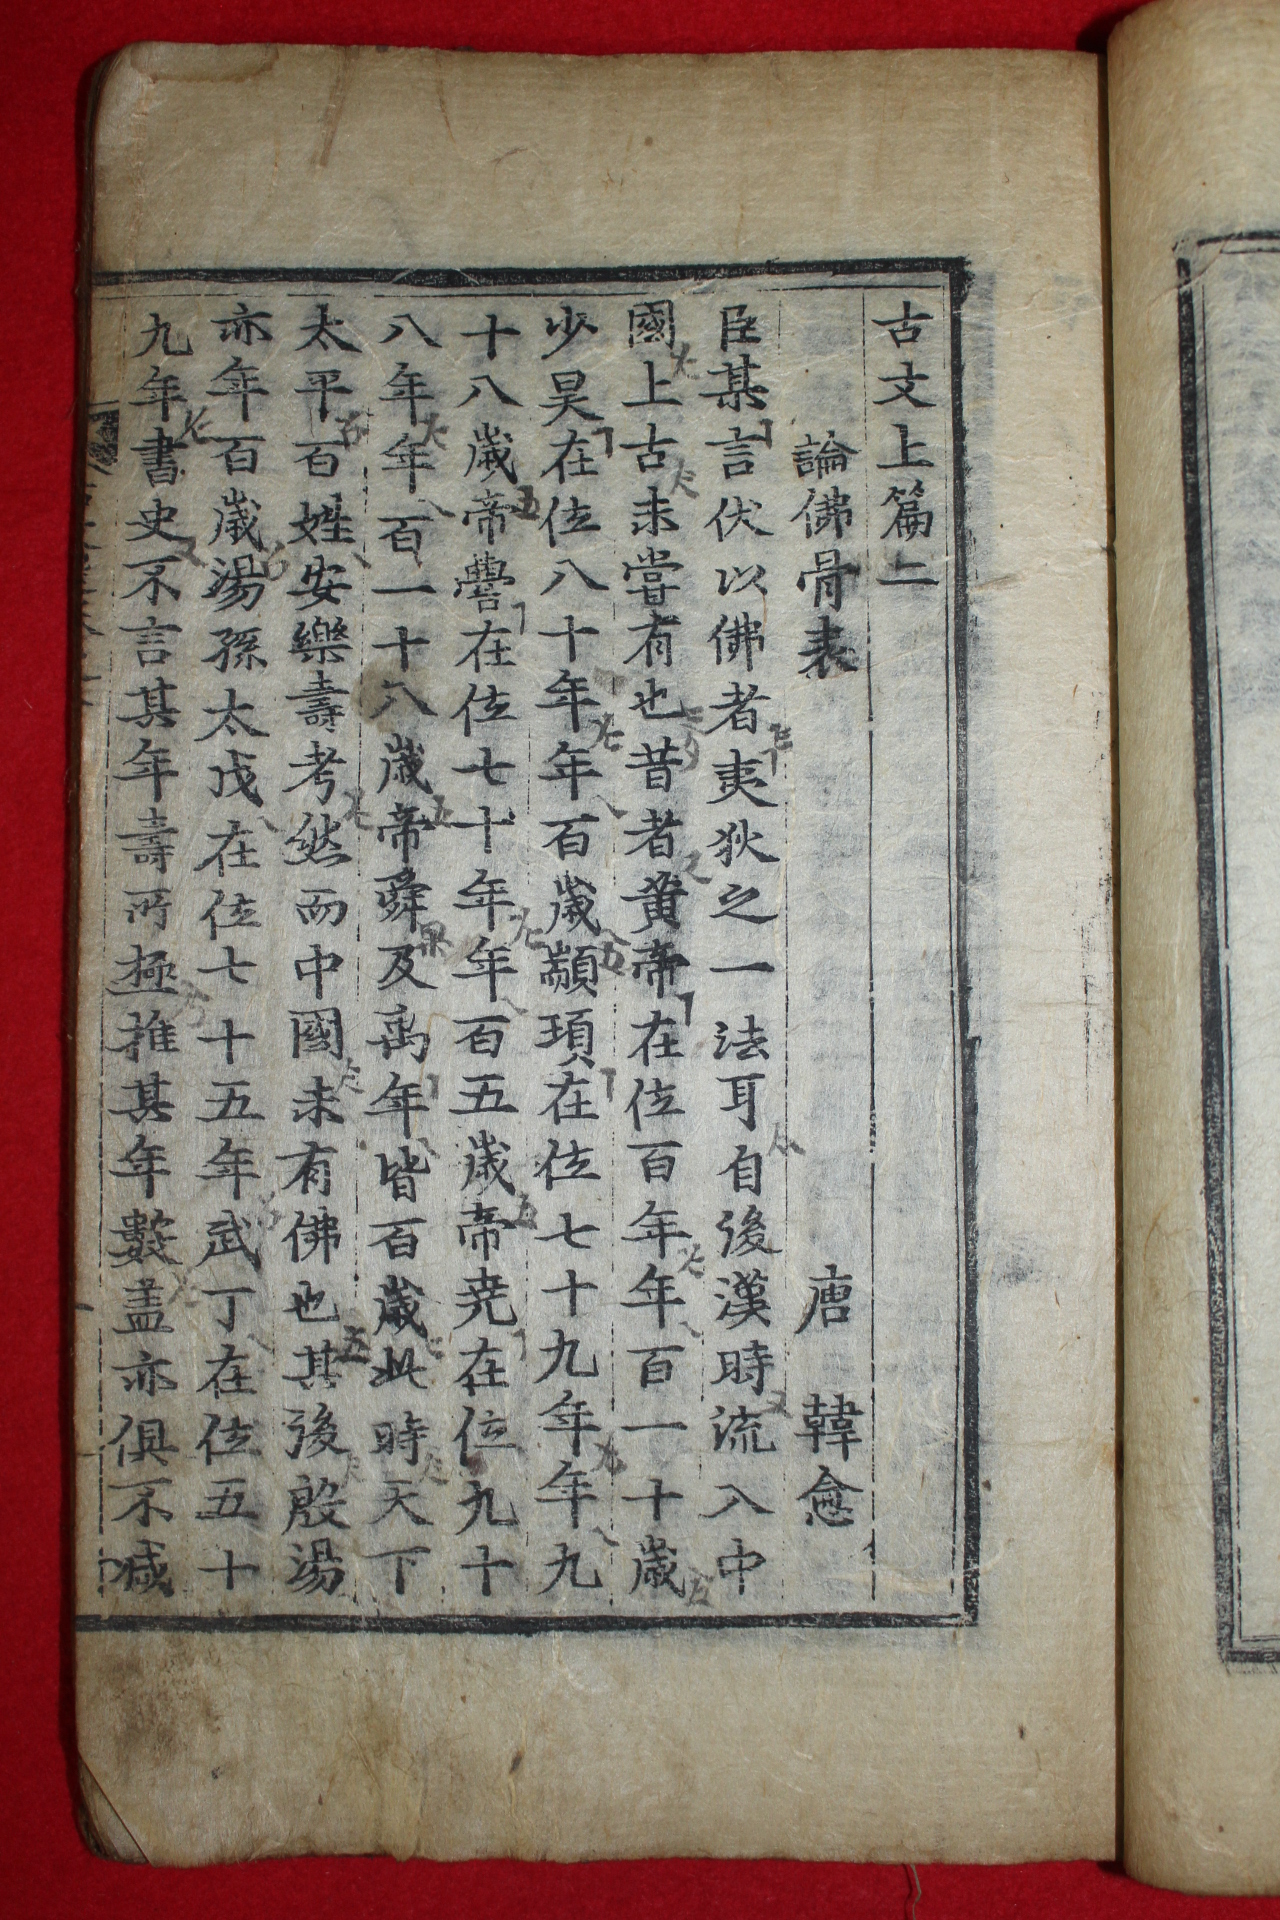 古文上篇二
論佛骨表 唐 韓愈
臣某言伏以佛者夷狄之一法耳自後漢時流入中
國上古未嘗有也昔者黃帝在位百年年百一十歲
少昊在位八十年年百歲顓頊在位七十九年年九
十八歲帝嚳在位七十年年百五歲帝堯在位九十
八年年百一十八歲帝舜及禹年皆百歲此時天下
太平百姓安樂壽考然而中國未有佛也其後殷湯
亦年百歲湯孫太戊在位七十五年武丁在位五十
九年書史不言其年壽所極推其年數盖亦俱不减